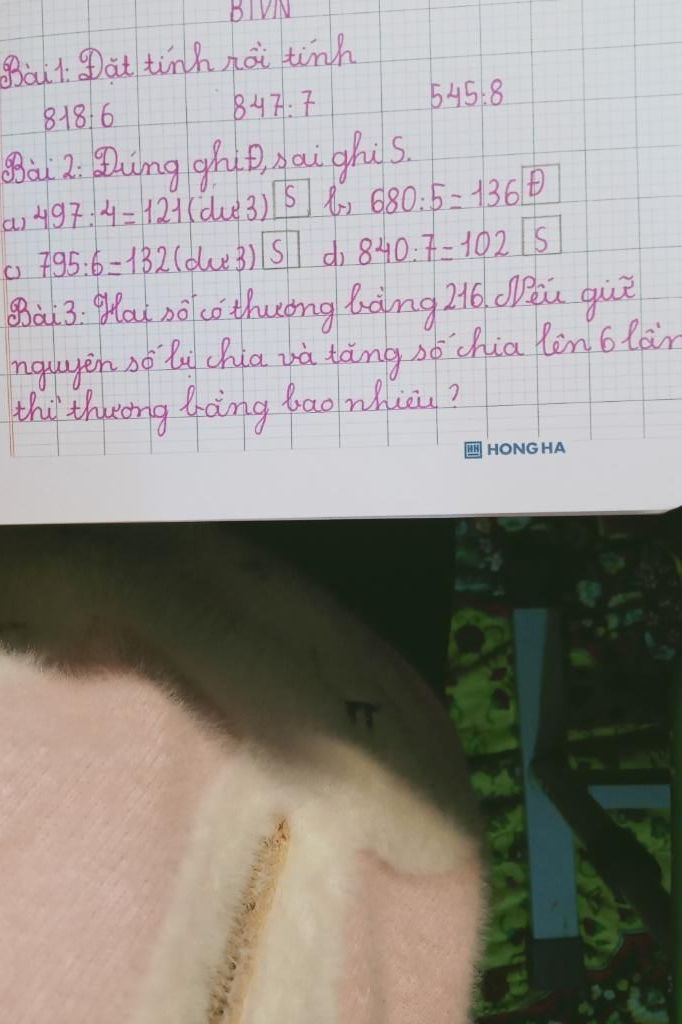 BTVN
Bài 1: Đặt tính rồi tính
818:6 847:7 545:8
Bài 2: Đúng ghi Đ, sai ghi S.
a) 497:4=121(dư 3) S b) 680:5=136 Đ
c) 795:6=132(dư 3) S d) 840:7=102 S
Bài 3: Hai số có thương bằng 216. Nếu giữ
nguyên số bị chia và tăng số chia lên 6 lần
thì thương bằng bao nhiêu?
HH HONG HA